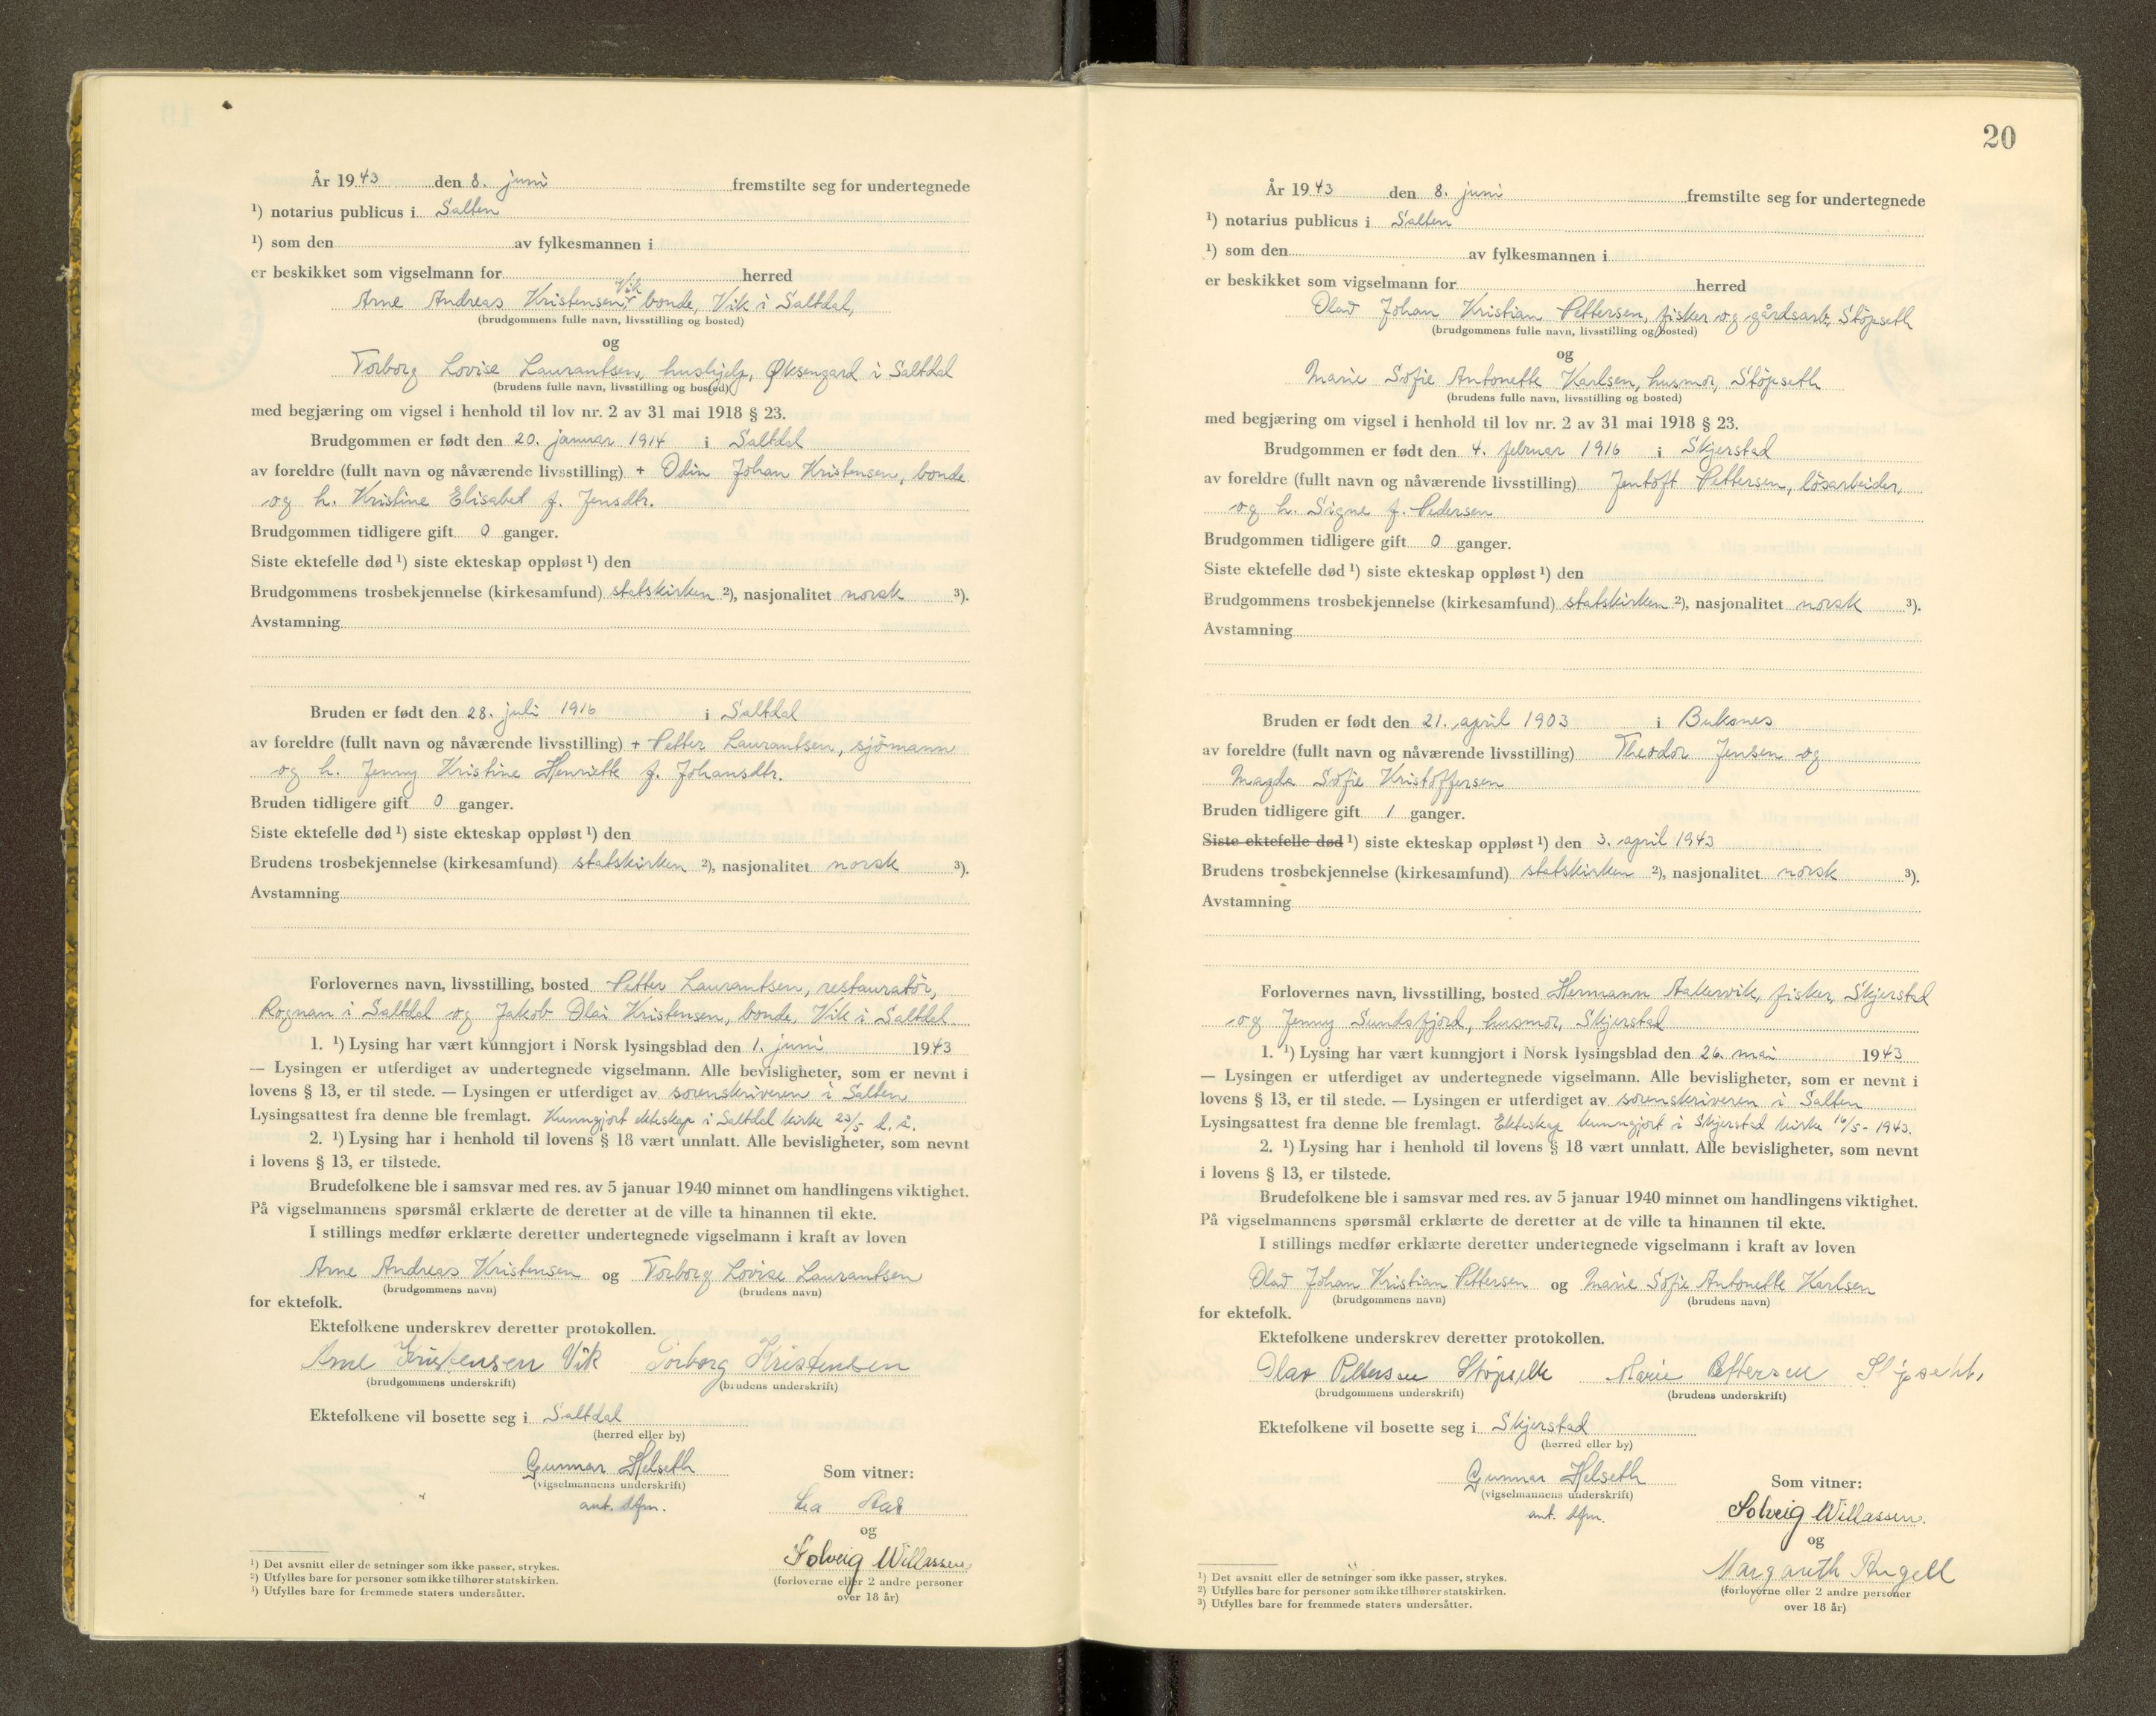 År 1943 den 8. juni fremstilte seg for undertegnede
¹) notarius publicus i Salten
¹) som den av fylkesmannen i
er beskikket som vigselmann for herred
Vik
Arne Andreas Kristensen, bonde, Vik i Saltdal,
(brudgommens fulle navn, livsstilling og bosted)
og
Torborg Lovise Laurantsen, hushjelp, Øksengard i Saltdal
(brudens fulle navn, livsstilling og bosted)
med begjæring om vigsel i henhold til lov nr. 2 av 31 mai 1918 § 23.
Brudgommen er født den 20. januar 1914 i Saltdal
av foreldre (fullt navn og nåværende livsstilling) + Odin Johan Kristensen, bonde
og h. Kristine Elisabet f. Jensdtr.
Brudgommen tidligere gift 0 ganger.
Siste ektefelle død ¹) siste ekteskap oppløst ¹) den
Brudgommens trosbekjennelse (kirkesamfund) statskirken ²), nasjonalitet norsk ³).
Avstamning
Bruden er født den 28. juli 1916 i Saltdal
av foreldre (fullt navn og nåværende livsstilling) + Petter Laurantsen, sjömann
og h. Jenny Kristine Henriette f. Johansdtr.
Bruden tidligere gift 0 ganger.
Siste ektefelle død ¹) siste ekteskap oppløst ¹) den
Brudens trosbekjennelse (kirkesamfund) statskirken ²), nasjonalitet norsk ³).
Avstamning
Forlovernes navn, livsstilling, bosted Petter Laurantsen, restauratör,
Rognan i Saltdal og Jakob Olai Kristensen, bonde, Vik i Saltdal
1. ¹) Lysing har vært kunngjort i Norsk lysingsblad den 1. juni 1943
— Lysingen er utferdiget av undertegnede vigselmann. Alle bevisligheter, som er nevnt i
lovens § 13, er til stede. — Lysingen er utferdiget av sorenskriveren i Salten
Lysingsattest fra denne ble fremlagt. Kunngjort ekteskap i Saltdal kirke 23/5 d. å.
2. ¹) Lysing har i henhold til lovens § 18 vært unnlatt. Alle bevisligheter, som nevnt
i lovens § 13, er tilstede.
Brudefolkene ble i samsvar med res. av 5 januar 1940 minnet om handlingens viktighet.
På vigselmannens spørsmål erklærte de deretter at de ville ta hinannen til ekte.
I stillings medfør erklærte deretter undertegnede vigselmann i kraft av loven
Arne Andreas Kristensen og Torborg Lovise Laurantsen
(brudgommens navn) (brudens navn)
for ektefolk.
Ektefolkene underskrev deretter protokollen.
Arne Kristensen Vik Torborg Kristensen
(brudgommens underskrift) (brudens underskrift)
Ektefolkene vil bosette seg i Saltdal
(herred eller by)
Gunnar Helseth
(vigselmannens underskrift)
aut. dfm.
Som vitner:
Lea
og
Solveig Willassen
(forloverne eller 2 andre personer
over 18 år)
¹) Det avsnitt eller de setninger som ikke passer, strykes.
²) Utfylles bare for personer som ikke tilhører statskirken.
³) Utfylles bare for fremmede staters undersåtter.
20
År 1943 den 8. juni fremstilte seg for undertegnede
¹) notarius publicus i Salten
¹) som den av fylkesmannen i
er beskikket som vigselmann for herred
Olav Johan Kristian Pettersen, fisker og gårdsarb, Stöpseth
(brudgommens fulle navn, livsstilling og bosted)
og
Marie Sofie Antonette Karlsen, husmor, Stöpseth
(brudens fulle navn, livsstilling og bosted)
med begjæring om vigsel i henhold til lov nr. 2 av 31 mai 1918 § 23.
Brudgommen er født den 4. februar 1916 i Skjerstad
av foreldre (fullt navn og nåværende livsstilling) Jentoft Pettersen, lösarbeider,
og h. Signe f. Pedersen
Brudgommen tidligere gift 0 ganger.
Siste ektefelle død ¹) siste ekteskap oppløst ¹) den
Brudgommens trosbekjennelse (kirkesamfund) statskirken ²), nasjonalitet norsk ³).
Avstamning
Bruden er født den 21. april 1903 i Buksnes
av foreldre (fullt navn og nåværende livsstilling) Theodor Jensen og
Magda Sofie Kristoffersen
Bruden tidligere gift 1 ganger.
Siste ektefelle død ¹) siste ekteskap oppløst ¹) den 3. april 1943
Brudens trosbekjennelse (kirkesamfund) statskirken ²), nasjonalitet norsk ³).
Avstamning
Forlovernes navn, livsstilling, bosted Hermann Aakervik, fisker, Skjerstad
og Jenny Sundsfjord, husmor, Skjerstad
1. ¹) Lysing har vært kunngjort i Norsk lysingsblad den 26. mai 1943
— Lysingen er utferdiget av undertegnede vigselmann. Alle bevisligheter, som er nevnt i
lovens § 13, er til stede. — Lysingen er utferdiget av sorenskriveren i Salten
Lysingsattest fra denne ble fremlagt. Ekteskap kunngjort i Skjerstad kirke 16/5 - 1943.
2. ¹) Lysing har i henhold til lovens § 18 vært unnlatt. Alle bevisligheter, som nevnt
i lovens § 13, er tilstede.
Brudefolkene ble i samsvar med res. av 5 januar 1940 minnet om handlingens viktighet.
På vigselmannens spørsmål erklærte de deretter at de ville ta hinannen til ekte.
I stillings medfør erklærte deretter undertegnede vigselmann i kraft av loven
Olav Johan Kristian Pettersen og Marie Sofie Antonette Karlsen
(brudgommens navn) (brudens navn)
for ektefolk.
Ektefolkene underskrev deretter protokollen.
Olav Pettersen Stöpseth Marie Pettersen Stöpseth,
(brudgommens underskrift) (brudens underskrift)
Ektefolkene vil bosette seg i Skjerstad
(herred eller by)
Gunnar Helseth
(vigselmannens underskrift)
aut. dfm.
Som vitner:
Solveig Willassen.
og
Margareth Angell
(forloverne eller 2 andre personer
over 18 år)
¹) Det avsnitt eller de setninger som ikke passer, strykes.
²) Utfylles bare for personer som ikke tilhører statskirken.
³) Utfylles bare for fremmede staters undersåtter.